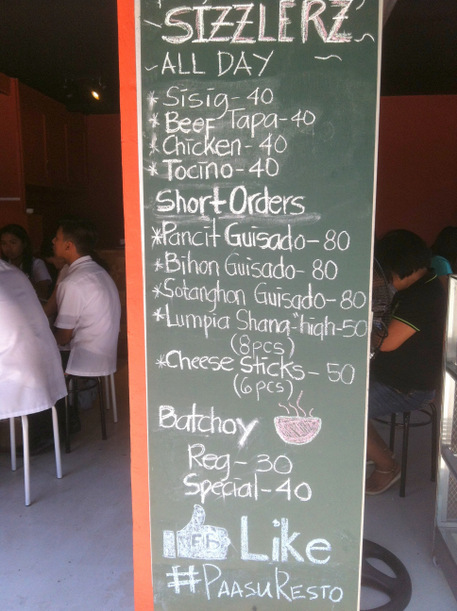 SIZZLERZ
~ALL DAY~
* Sisig-40
* Beef Tapa-40
* Chicken-40
* Tocino-40
Short Orders
*Pancit Guisado-80
*Bihon Guisado-80
*Sotanghon Guisado-80
*Lumpia Shang-"high-50
(8pcs)
*Cheese Sticks-50
(6pcs)
Batchoy
Reg-30
Special-40
FB Like
#PAASURESTO